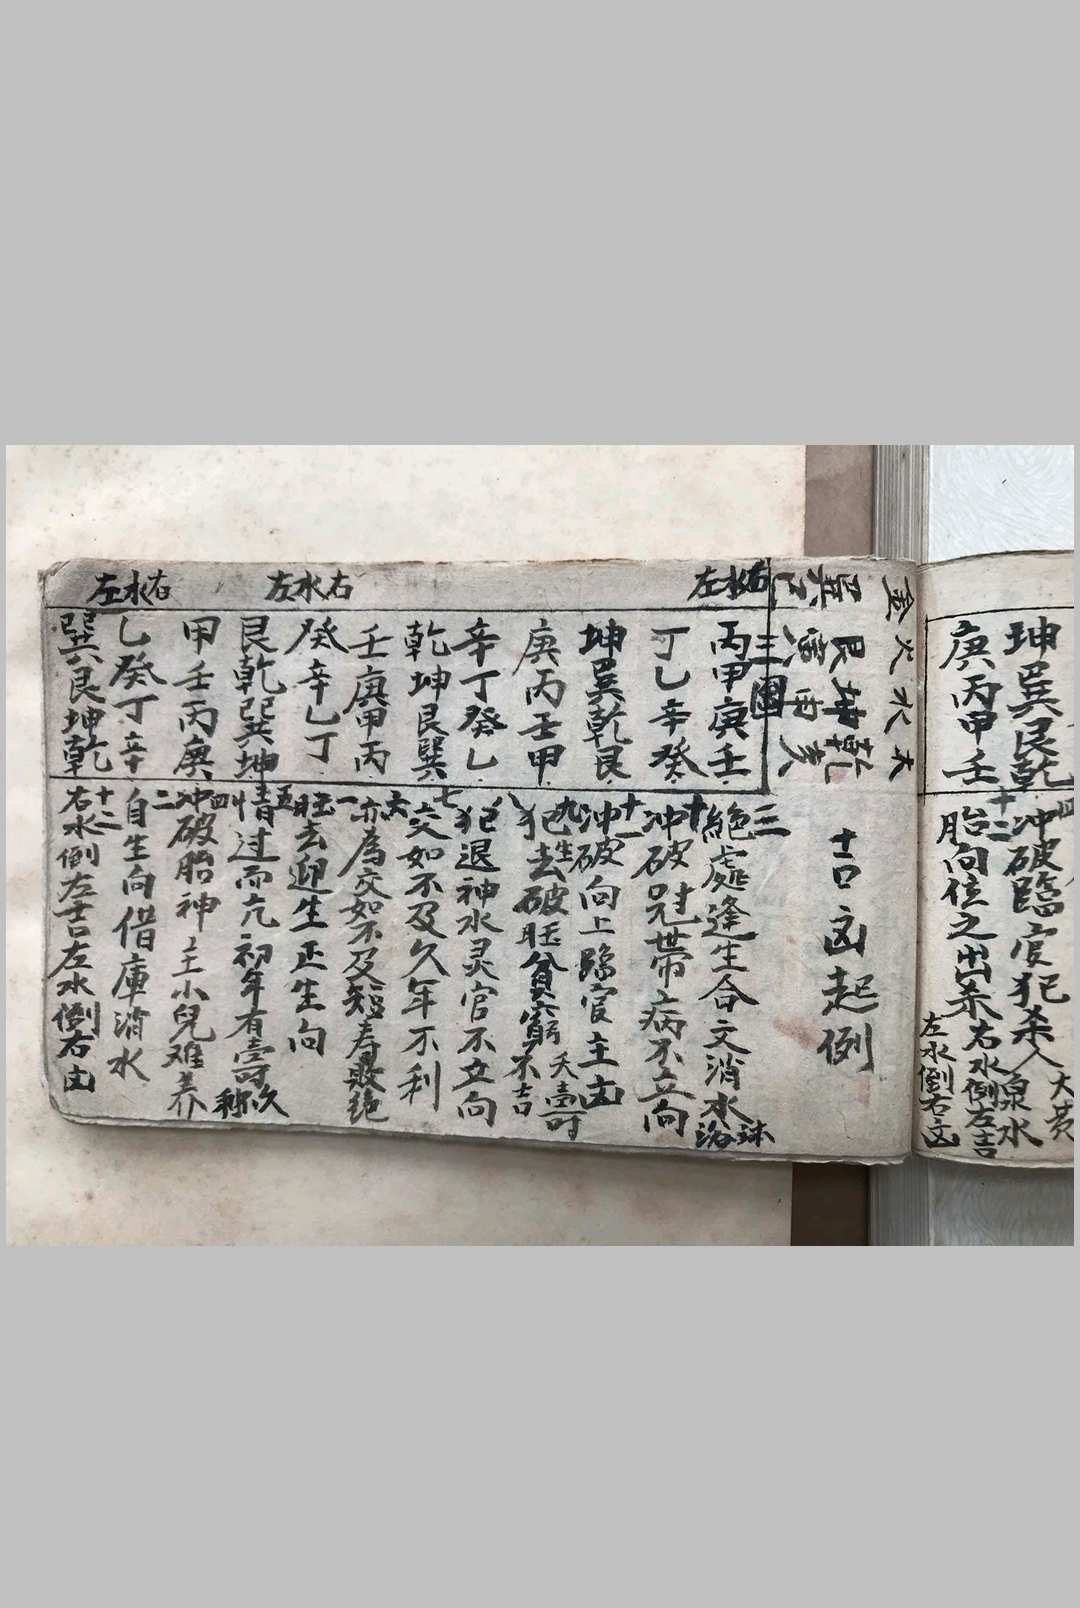 大黄
四
坤巽艮乾
冲破臨官犯杀人
泉水
十二
庚丙甲壬
胎向位之出杀
右水倒左吉
左水倒右凶
金火水木
巽
艮坤乾
寅申亥
吉凶起例
三圖
右水左
丙甲庚壬
三
絕處逢生合文消水
沐浴
丁乙辛癸
十
冲破冠带病不立向
坤巽乾艮
十一
冲破向上臨官主凶
庚丙壬甲
九
犯生去破旺貧窮不吉
夭壽可
辛丁癸乙
八
犯退神水灵官不立向
乾坤艮巽
七
交如不及久年不利
壬庚甲丙
六
亦為交如不及短寿敗絕
右水左
癸辛乙丁
一
旺去迎生正生向
艮乾巽坤
五
情过而亢初年有壽可久
稱
甲壬丙庚
四
冲破胎神主小兒难养
右水左
乙癸丁辛
二
自生向借庫消水
巽艮坤乾
十二
右水倒左吉左水倒右凶